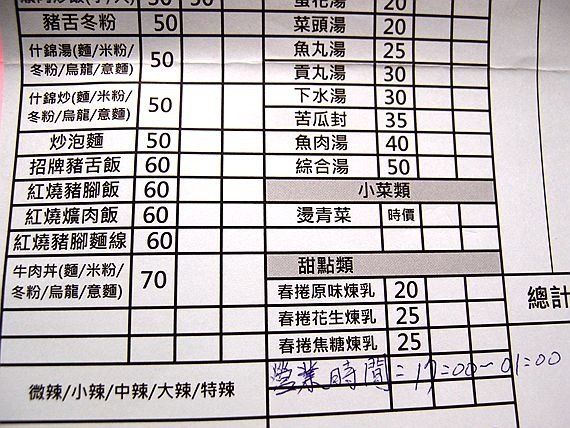 50 50
豬舌冬粉 50
什錦湯(麵/米粉/
冬粉/烏龍/意麵) 50
什錦炒(麵/米粉/
冬粉/烏龍/意麵) 50
炒泡麵 50
招牌豬舌飯 60
紅燒豬腳飯 60
紅燒爌肉飯 60
紅燒豬腳麵線 60
牛肉丼(麵/米粉/
冬粉/烏龍/意麵) 70
微辣/小辣/中辣/大辣/特辣
蛋花湯 20
菜頭湯 20
魚丸湯 25
貢丸湯 30
下水湯 30
苦瓜封 35
魚肉湯 40
綜合湯 50
小菜類
燙青菜 時價
甜點類
春捲原味煉乳 20
春捲花生煉乳 25
春捲焦糖煉乳 25
總計
營業時間=17:00~01:00